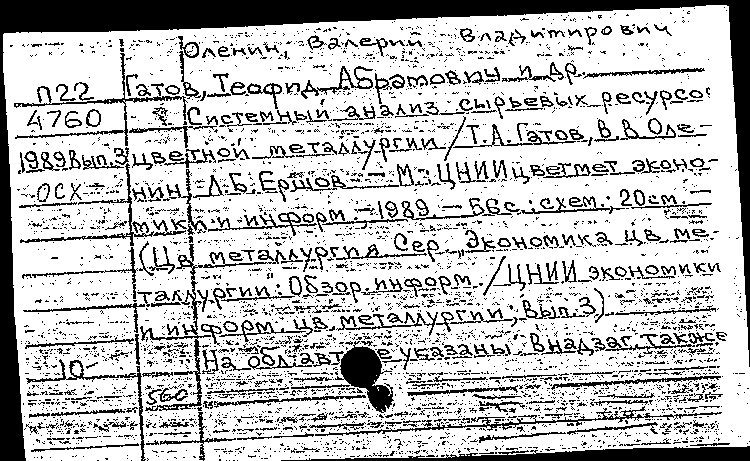 Оленин, Валерий Владимирович
П22 Гатов, Теофид Абрамович и др.
4760 Системный анализ сырьевых ресурсов
1989 Вып.3 цветной металлургии / Т.А. Гатов, В.В. Оле-
ОСХ нин, Л.Б. Ершов. — М.: ЦНИИцветмет эконо-
мики и информ., — 1989. — 56с.: схем.; 20см. —
(Цв. металлургия. Сер. „Экономика цв. ме-
таллургии": Обзор. информ. / ЦНИИ экономики
и информ. цв. металлургии; Вып. 3)
10- На обл. авт. не указаны. В надзаг. также
560